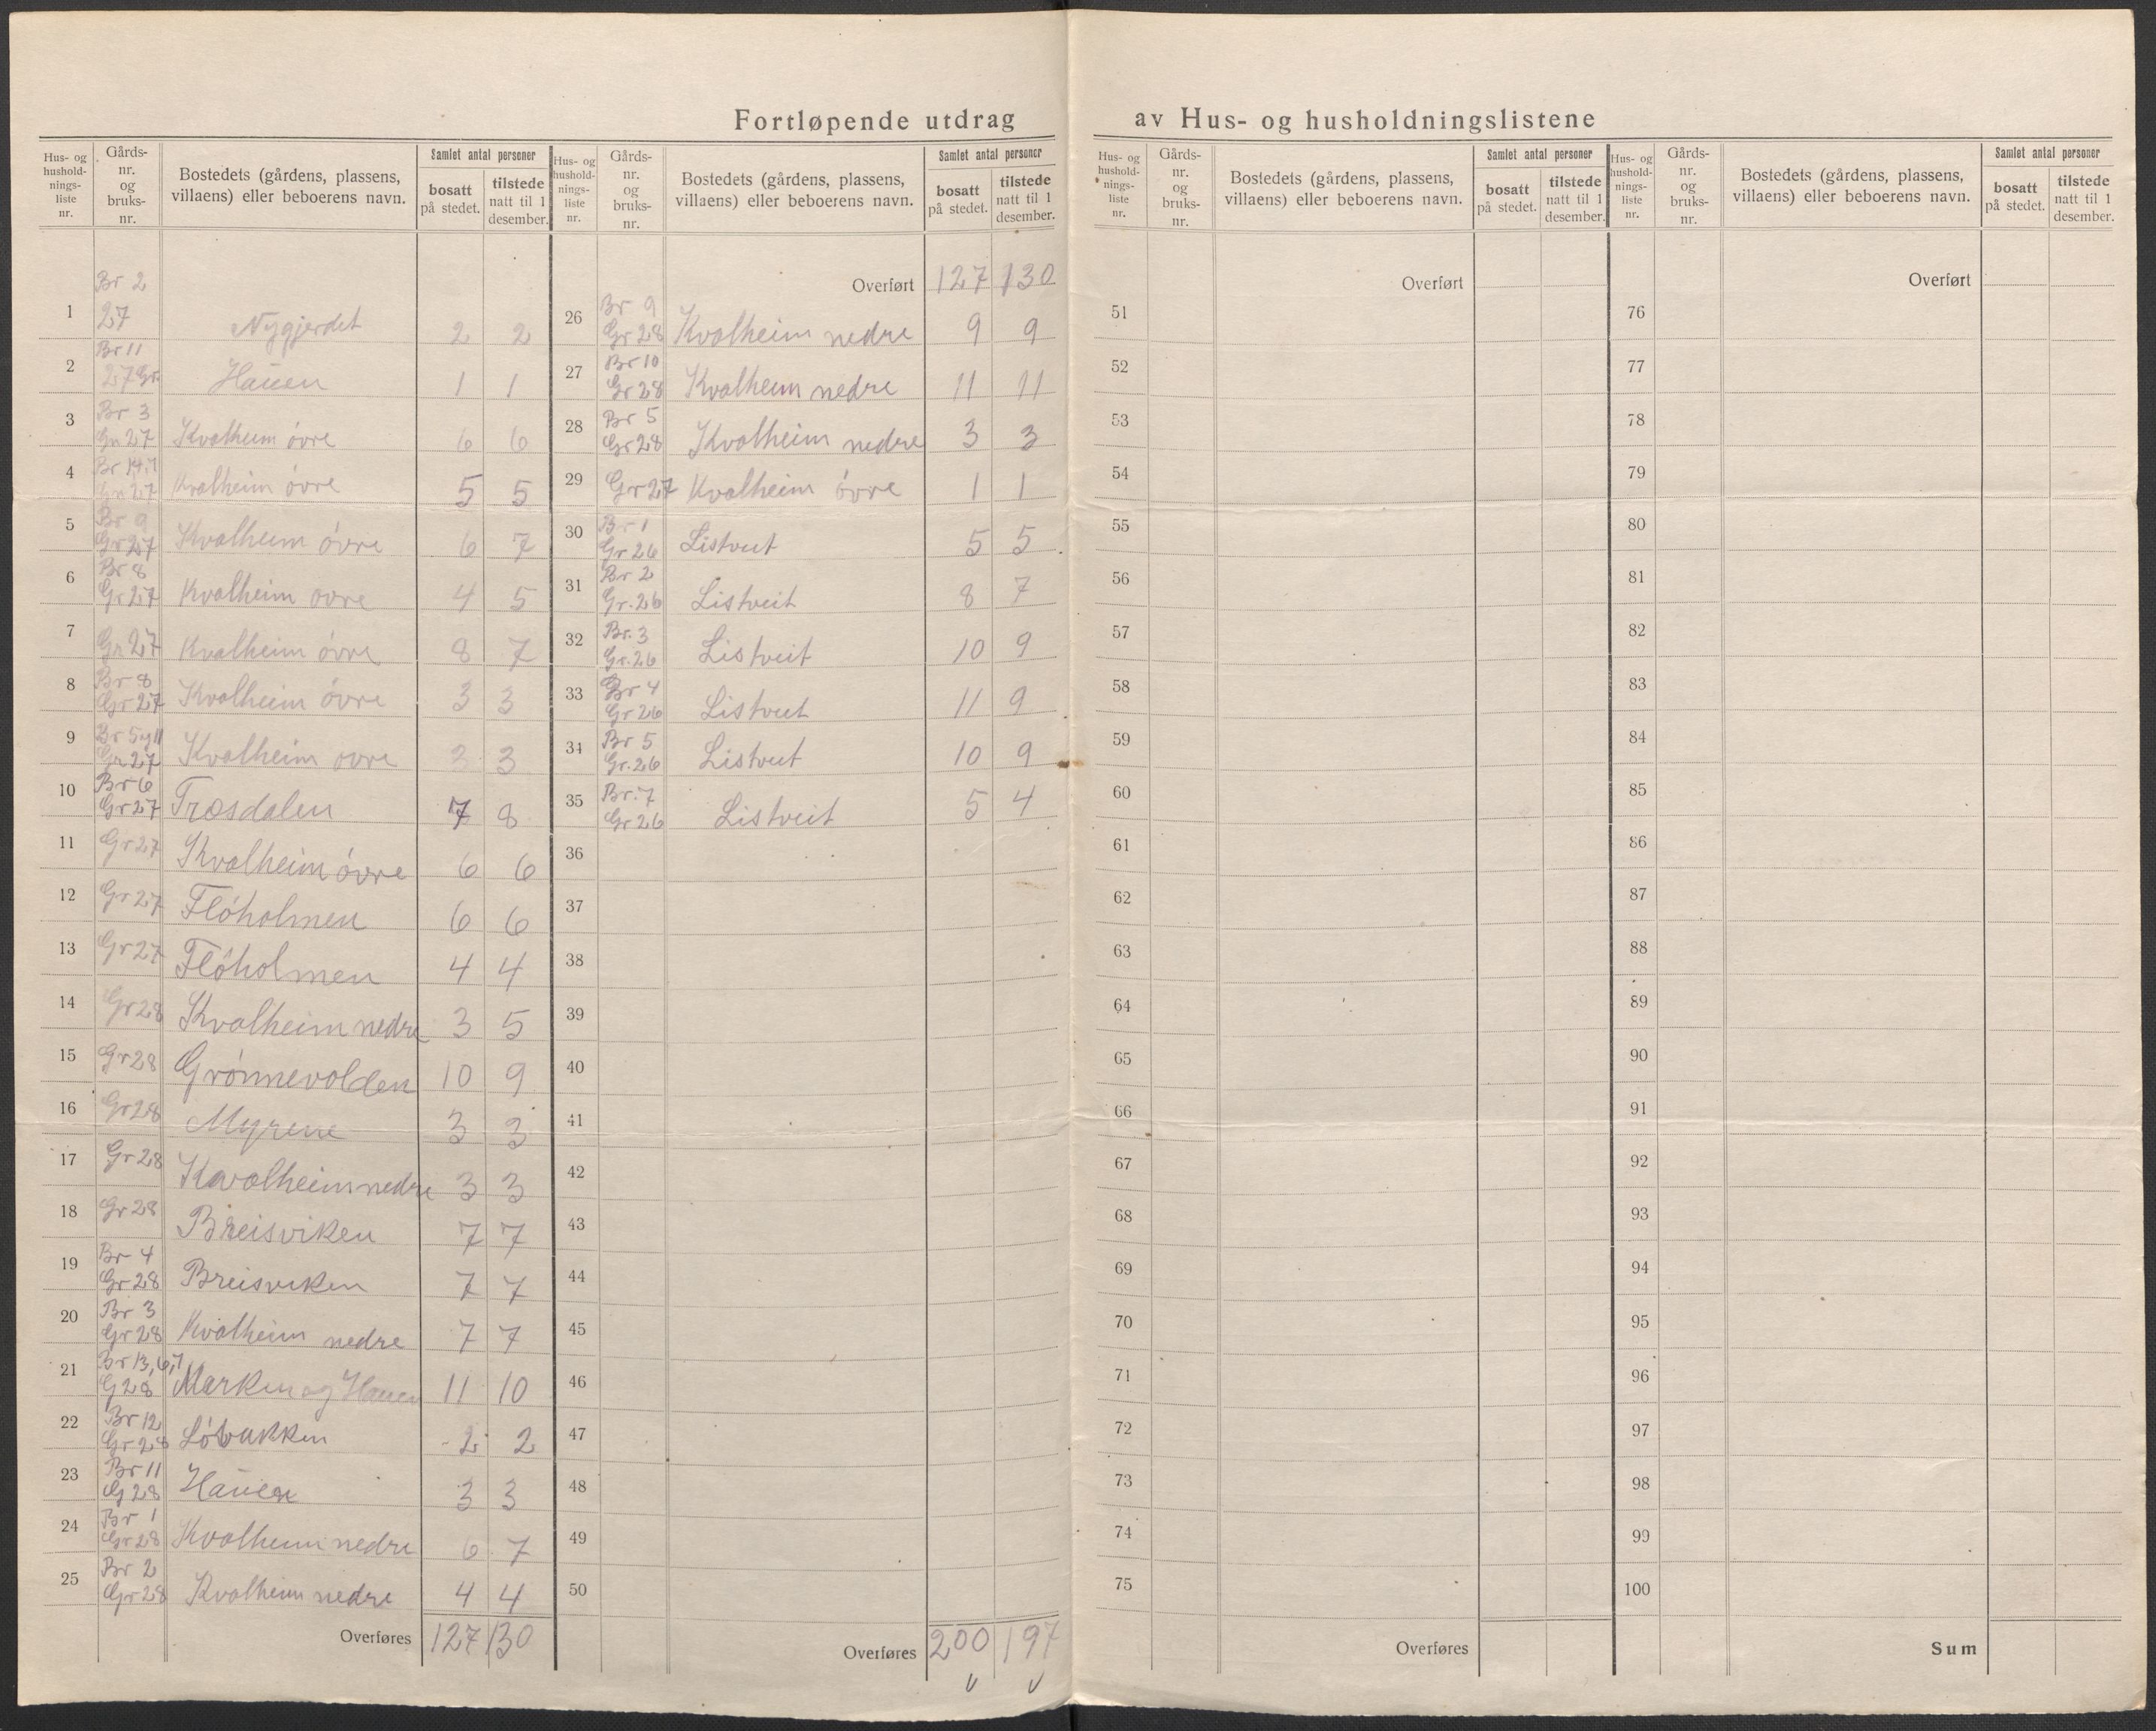 Fortløpende utdrag av Hus- og husholdningslistene
Hus- og hushold-nings-liste nr. | Gårds-nr. og bruks-nr. | Bostedets (gårdens, plassens, villaens) eller beboerens navn. | Samlet antal personer | bosatt på stedet. | tilstede natt til 1 desember.
1 | Br 2 27 | Nygjerdet | 2 | 2
2 | Br 11 27 Gr. | Hauen | 1 | 1
3 | Br 3 Gn 27 | Kvalheim övre | 6 | 6
4 | Gn 27 | Kvalheim övre | 5 | 5
5 | Br 9 Gr 27 | Kvalheim övre | 6 | 7
6 | Br 8 Gr 27 | Kvalheim ovre | 4 | 5
7 | Gr 27 | Kvalheim övre | 8 | 7
8 | Br 8 Gr 27 | Kvalheim övre | 3 | 3
9 | Br 5 og 11 Gn 27 | Kvalheim ovre | 3 | 3
10 | Br 6 Gr 27 | Træsdalen | 7 | 8
11 | Gr 27 | Kvalheim övre | 6 | 6
12 | Gr 27 | Flóholmen | 6 | 6
13 | Gr 27 | Flóholmen | 4 | 4
14 | Gr 28 | Kvalheim nedre | 3 | 5
15 | Gr 28 | Grónnevolden | 10 | 9
16 | Gr 28 | Myrene | 3 | 3
17 | Gr 28 | Kavalheim nedre | 3 | 3
18 | Gr 28 | Breisviken | 7 | 7
19 | Br 4 Gr 28 | Breisviken | 7 | 7
20 | Br 3 Gr 28 | Kvalheim nedre | 7 | 7
21 | Br 13, 6, 7 G 28 | Marken og Hauen | 11 | 10
22 | Br 12 Gr 28 | Lóbakken | 2 | 2
23 | Br 11 G 28 | Hauen | 3 | 3
24 | Br 1 Gr 28 | Kvalheim nedre | 6 | 7
25 | Br 2 Gr 28 | Kvalheim nedre | 4 | 4
Overføres | 127 | 130
Hus- og hushold-nings-liste nr. | Gårds-nr. og bruks-nr. | Bostedets (gårdens, plassens, villaens) eller beboerens navn. | Samlet antal personer | bosatt på stedet. | tilstede natt til 1 desember.
Overført | 127 | 130
26 | Br 9 Gr 28 | Kvalheim nedre | 9 | 9
27 | Br 10 Gr 28 | Kvalheim nedre | 11 | 11
28 | Br 5 Gr 28 | Kvalheim nedre | 3 | 3
29 | Gr 27 | Kvalheim övre | 1 | 1
30 | Br 1 Gr 26 | Listveit | 5 | 5
31 | Br 2 Gr. 26 | Listveit | 8 | 7
32 | Br. 3 Gr. 26 | Listveit | 10 | 9
33 | Br 4 Gr 26 | Listveit | 11 | 9
34 | Br 5 Gr. 26 | Listveit | 10 | 9
35 | Br. 7 Gr 26 | Listveit | 5 | 4
36
37
38
39
40
41
42
43
44
45
46
47
48
49
50
Overføres | 200 | 197
Hus- og hushold-nings-liste nr. | Gårds-nr. og bruks-nr. | Bostedets (gårdens, plassens, villaens) eller beboerens navn. | Samlet antal personer | bosatt på stedet. | tilstede natt til 1 desember.
Overført
51
52
53
54
55
56
57
58
59
60
61
62
63
64
65
66
67
68
69
70
71
72
73
74
75
Overføres
Hus- og hushold-nings-liste nr. | Gårds-nr. og bruks-nr. | Bostedets (gårdens, plassens, villaens) eller beboerens navn. | Samlet antal personer | bosatt på stedet. | tilstede natt til 1 desember.
Overført
76
77
78
79
80
81
82
83
84
85
86
87
88
89
90
91
92
93
94
95
96
97
98
99
100
Sum